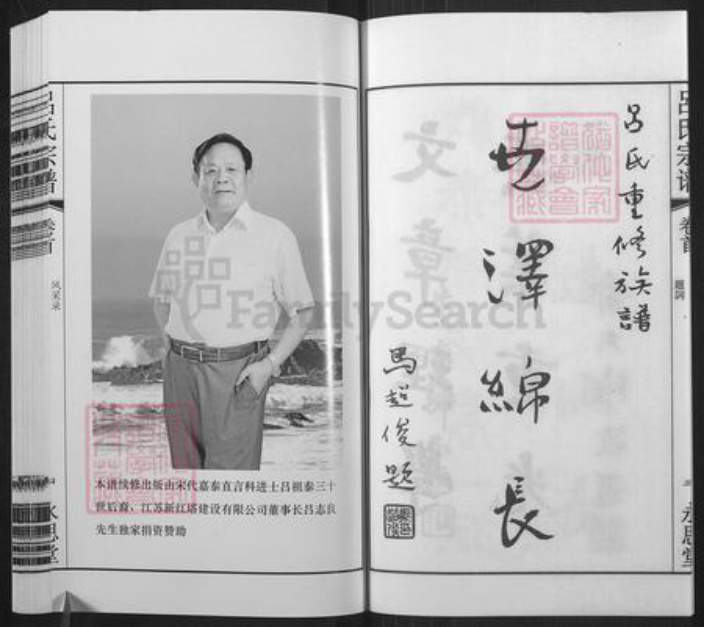 呂氏重修族譜
世澤綿長
馬超俊題
題詞
卷首
永思堂
呂氏宗谱
卷首
风采录
永思堂
本谱续修出版由宋代嘉泰直言科进士吕祖泰三十
世后裔、江苏新江塔建设有限公司董事长吕志良
先生独家捐资赞助
FamilySearch